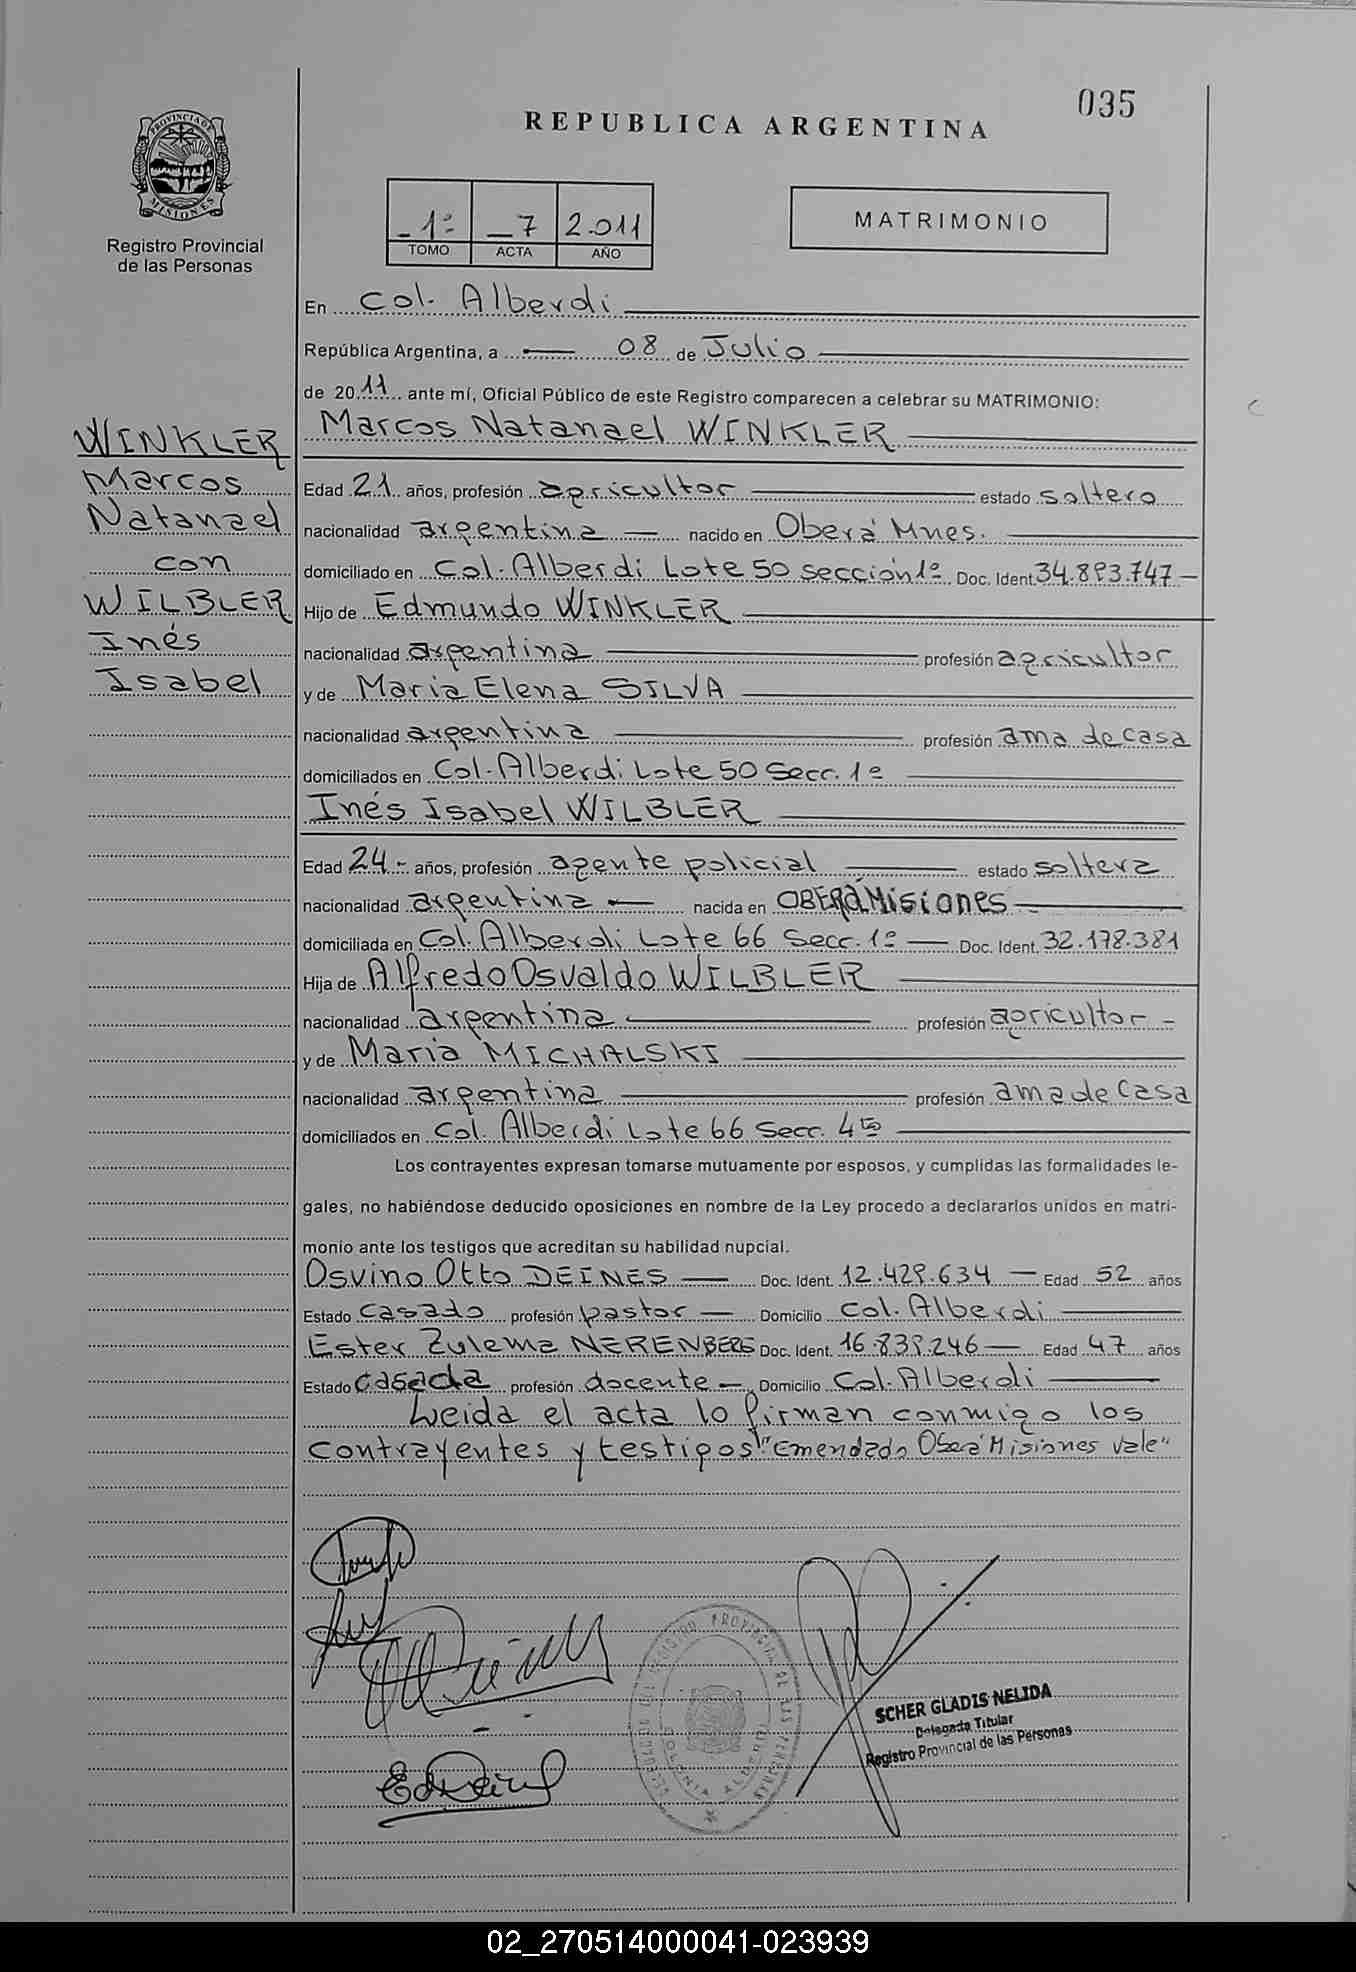 035
REPUBLICA ARGENTINA
PROVINCIA DE
MISIONES
Registro Provincial
de las Personas
1º 7 2.011
TOMO ACTA AÑO
MATRIMONIO
En Col. Alberdi
República Argentina, a 08 de Julio
de 2011 ante mí, Oficial Público de este Registro comparecen a celebrar su MATRIMONIO:
WINKLER
Marcos
Natanael
con
WILBLER
Inés
Isabel
Marcos Natanael WINKLER
Edad 21 años, profesión agricultor estado soltero
nacionalidad argentina nacido en Oberá Mnes.
domiciliado en Col. Alberdi Lote 50 sección 1º Doc. Ident. 34.893.747
Hijo de Edmundo WINKLER
nacionalidad argentina profesión agricultor
y de Maria Elena SILVA
nacionalidad argentina profesión ama de casa
domiciliados en Col. Alberdi Lote 50 Secc. 1º
Inés Isabel WILBLER
Edad 24 años, profesión agente policial estado soltera
nacionalidad argentina nacida en OBERÁ Misiones
domiciliada en Col. Alberdi Lote 66 Secc. 1º Doc. Ident. 32.178.381
Hija de Alfredo Osvaldo WILBLER
nacionalidad argentina profesión agricultor
y de Maria MICHALSKI
nacionalidad argentina profesión ama de casa
domiciliados en Col. Alberdi Lote 66 Secc. 4ta
Los contrayentes expresan tomarse mutuamente por esposos, y cumplidas las formalidades le-
gales, no habiéndose deducido oposiciones en nombre de la Ley procedo a declararlos unidos en matri-
monio ante los testigos que acreditan su habilidad nupcial.
Osvino Otto DEINES Doc. Ident. 12.429.634 Edad 52 años
Estado casado profesión pastor Domicilio Col. Alberdi
Ester Zulema NERENBERG Doc. Ident. 16.839.246 Edad 47 años
Estado casada profesión docente Domicilio Col. Alberdi
Leida el acta lo firman conmigo los
contrayentes y testigos "Emendado Oberá Misiones vale"
SCHER GLADIS NELIDA
Delegada Titular
Registro Provincial de las Personas
02_270514000041-023939